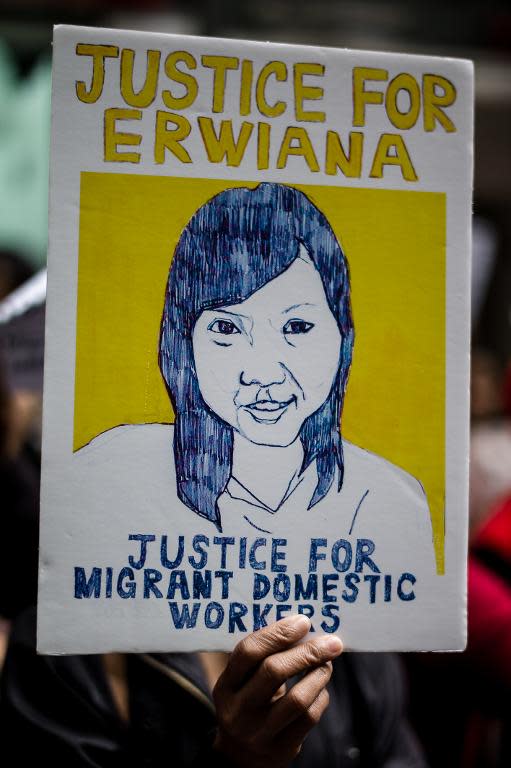 JUSTICE FOR
ERWIANA
JUSTICE FOR
MIGRANT DOMESTIC
WORKERS